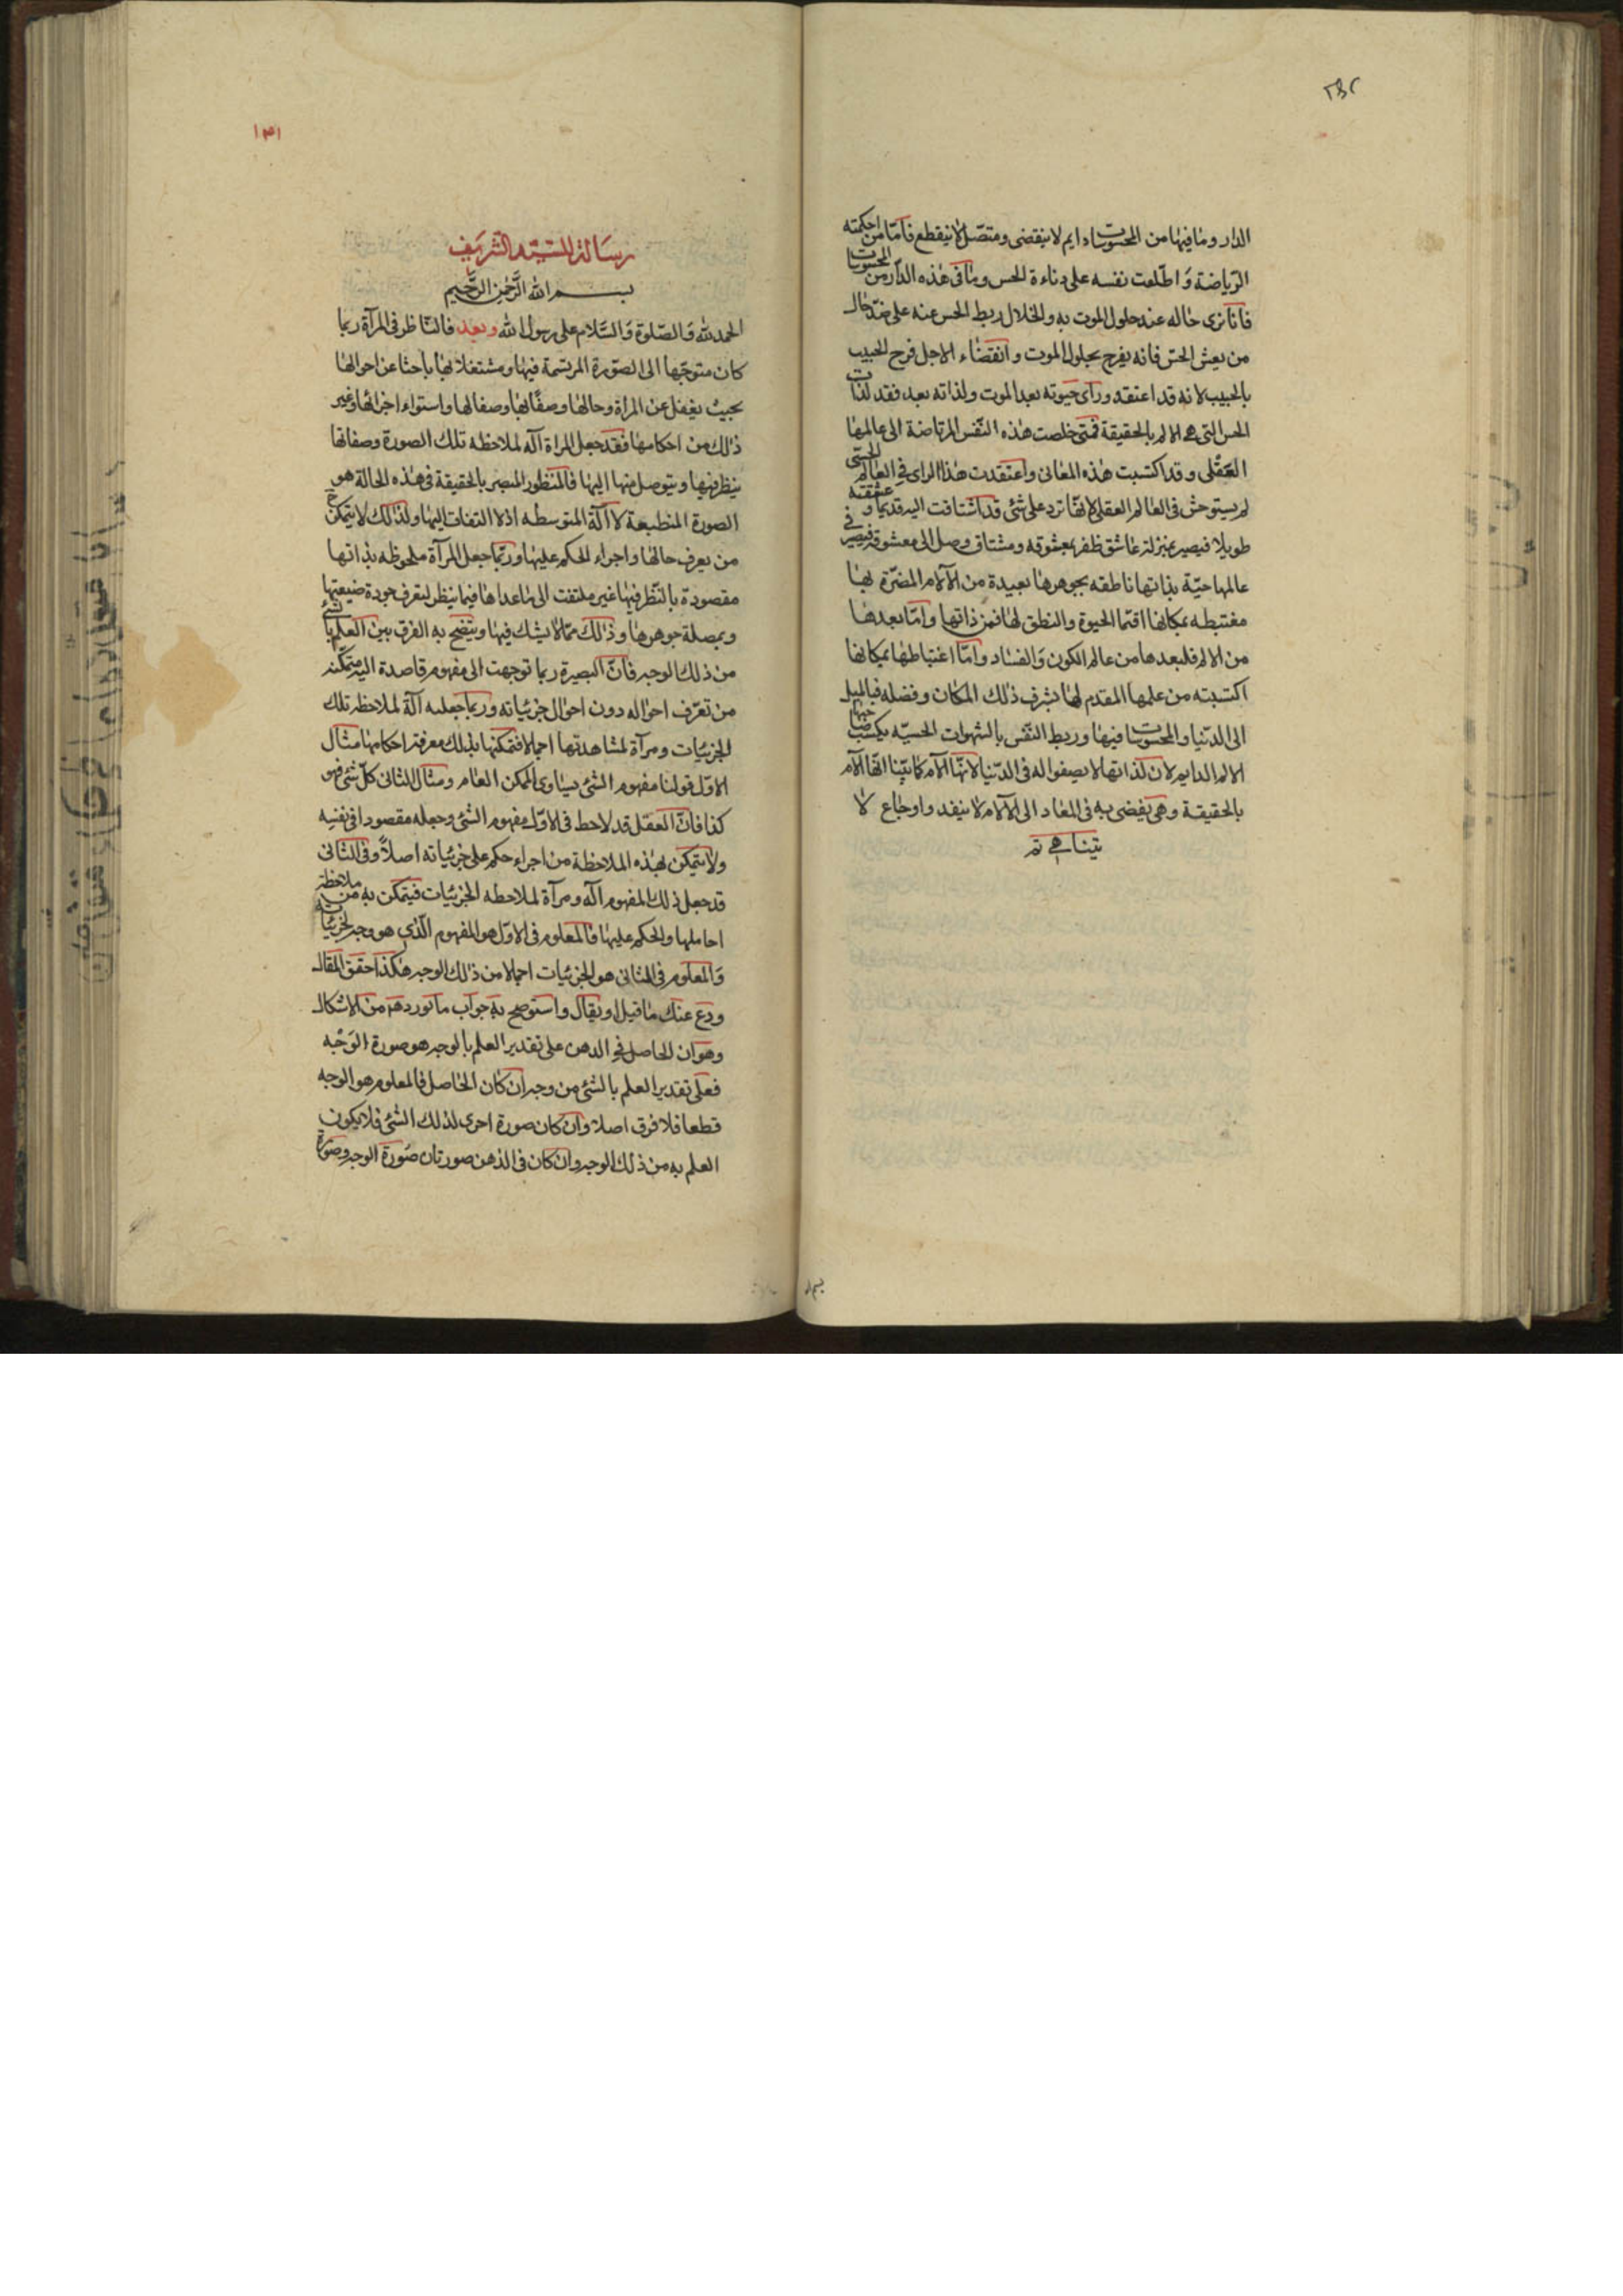 الدار وما فيها من المحسوسات دايم لا ينقضى ومتصل لا ينقطع فامّا من احكمته
الرّياضة وَاطّلعت نفسه على دناءة الحس وما فى هذه الدّار من المحسوسات
فانا نرى حاله عند حلول الموت به وانحلال ربط الحس عنه على ضدّ حال
من يعشق الحسّ فانه يفرح بحلول الموت وانقضاء الاجل فرح الحبيب
بالحبيب لانه قد اعتقد ورأى حيوته بعد الموت ولذاته بعد فقد لذات
الحس التى هى الالم بالحقيقة فمتى خلصت هذه النّفس المرتاضة الى عالمها
العقلى وقد اكتسبت هذه المعانى واعتقدت هذا الراى فى العالم الحسّى
لم يستوحش فى العالم العقلى لانها ترد على شئى قد اشتاقت اليه قديما وعشقته
طويلا فيصير بمنزلة عاشق ظفر بمعشوقه ومشتاق وصل الى معشوقه فيصير فى
عالمها حيّة بذاتها ناطقه بجوهرها بعيدة من الآلام المضرّة بها
مغتبطه بمكانها امّا الحيوة والنطق لها فمن ذاتها وامّا بعدها
من الالم فلبعدها من عالم الكون وَالفساد وامّا اغتباطها بمكانها
اكتسبته من علمها المقدم لها بشرف ذلك المكان وفضله فبالميل
الى الدّنيا والمحسوسات فيها وربط النّفس بالشهوات الحسيّه يكسب صاحبها
الالم الدايم لان لذاتها لا يصفوا له فى الدّنيا لانّها آلام كما بيّنا انّها آلام
بالحقيقة وهى يفضى به فى المعاد الى الآلام لا ينفد واوجاع لا
يتناهى تم
١٣١
رسالة للسيّد الشريف
بسم الله الرَّحمن الرَّحيم
الحمد لله وَالصّلوة وَالسَّلام على رسول الله وبعد فالنّاظر فى المرآة ربما
كان متوجّها الى الصوّرة المرتسمة فيها ومشتغلا بها باحثا عن احوالها
بحيث يغفل عن المراة وحالها وصفائها وصقالها واستواء اجزائها وغير
ذلك من احكامها فقد جعل المراة آلة لملاحظه تلك الصورة وصفاتها
ينظر فيها ويتوصل منها اليها فالمنظور المبصر بالحقيقة فى هذه الحالة هو
الصورة المنطبعة لا الآلة المتوسطه اذ لا التفات اليها ولذلك لا يتمكن ح
من يعرف حالها واجراء الحكم عليها وربّما جعل المرآة ملحوظه بذاتها
مقصودة بالنّظر فيها غير ملتفت الى ما عداها فيما ينظر ليتعرف جودة صنيعتها
جوهرها وذلك ممّا لا يشك فيها ويتضح به الفرق بين العلم بالشئ
من ذلك الوجه فانّ البصيرة ربما توجهت الى مفهوم قاصدة اليه متمكّنه
من تعرّف احواله دون احوال جزئياته وربما جعلته آلة لملاحظه تلك
الجزئيات ومرآة لمشاهدتها اجمالا فتمكنها بذلك معرفة احكامها مثال
الاوّل قولنا مفهوم الشئى يساوى الممكن العام ومثال الثانى كلّ شئى فهو
كذا فانّ العقل قد لاحظ فى الاوّل مفهوم الشئى وجعله مقصودا فى نفسه
ولا يتمكن بهذه الملاحظة من اجراء حكم على جزئياته اصلاً وفى الثانى
قد جعل ذلك المفهوم آلة ومرآة لملاحظه الجزئيات فيتمكن به من ملاحظة
والحكم عليها فالمعلوم فى الاوّل هو المفهوم الّذى هو وجه لجزئياته
وَالمعلوم فى الثانى هو الجزئيات اجمالا من ذلك الوجه هكذا حقق المقال
ودع عنك ما قيل او يقال واستوضح به جواب ما تورد هم من الاشكال
وهو ان الحاصل فى الدهن على تقدير العلم بالوجه هو صورة الوَجْه
فعلى تقدير العلم بالشئى من وجه ان كان الحاصل فالمعلوم هو الوجه
قطعا فلا فرق اصلا وان كان صورة اخرى لذلك الشئى فلا يكون
العلم به من ذلك الوجه وان كان فى الذهن صورتان صورة الوجه وصورة